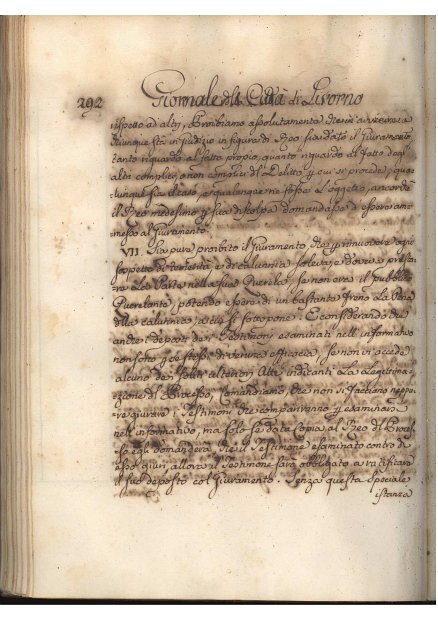 292 Giornale della Città di Livorno
rispetto ad altri, Proibiamo assolutamente che in avvenire a
chiunque stà in Giudizio in figura di Reo sia dato il Giuramento
tanto riguardo al fatto proprio, quanto riguardo al fatto degl'
altri complici, o non complici del Delitto per cui si procede, qua-
lunque sia il caso, e qualunque ne fosse l'oggetto, ancorchè
il Reo medesimo per sua discolpa domandasse d'essere am-
messo al Giuramento.
VII. Sia pure proibito il Giuramento che per rimuovere ogni
sospetto di temerità e di calunnia soleva e doveva presta-
re La Parte nella sua Querela, se non era il pubblico
Querelante, potendo essere di un bastante freno La Pena
della calunnia, a cui si sottopone: E considerando che
anche i deposti dei Testimoni esaminati nell'informativo
non sono per se stessi di veruna efficacia, se non vi accede
alcuno dei soliti ulteriori Atti inducenti La Legittima-
zione del Processo, Comandiamo, che non si facciano neppu-
re giurare i Testimoni che compariranno per esaminarsi
nell'informativo, ma solo se data Copia al Reo del Proces-
so egli domanderà, che il Testimone esaminato contro di
esso giuri, allora il Testimone sarà obbligato a ratificare
il suo deposto col Giuramento. Senza questa speciale
istanza